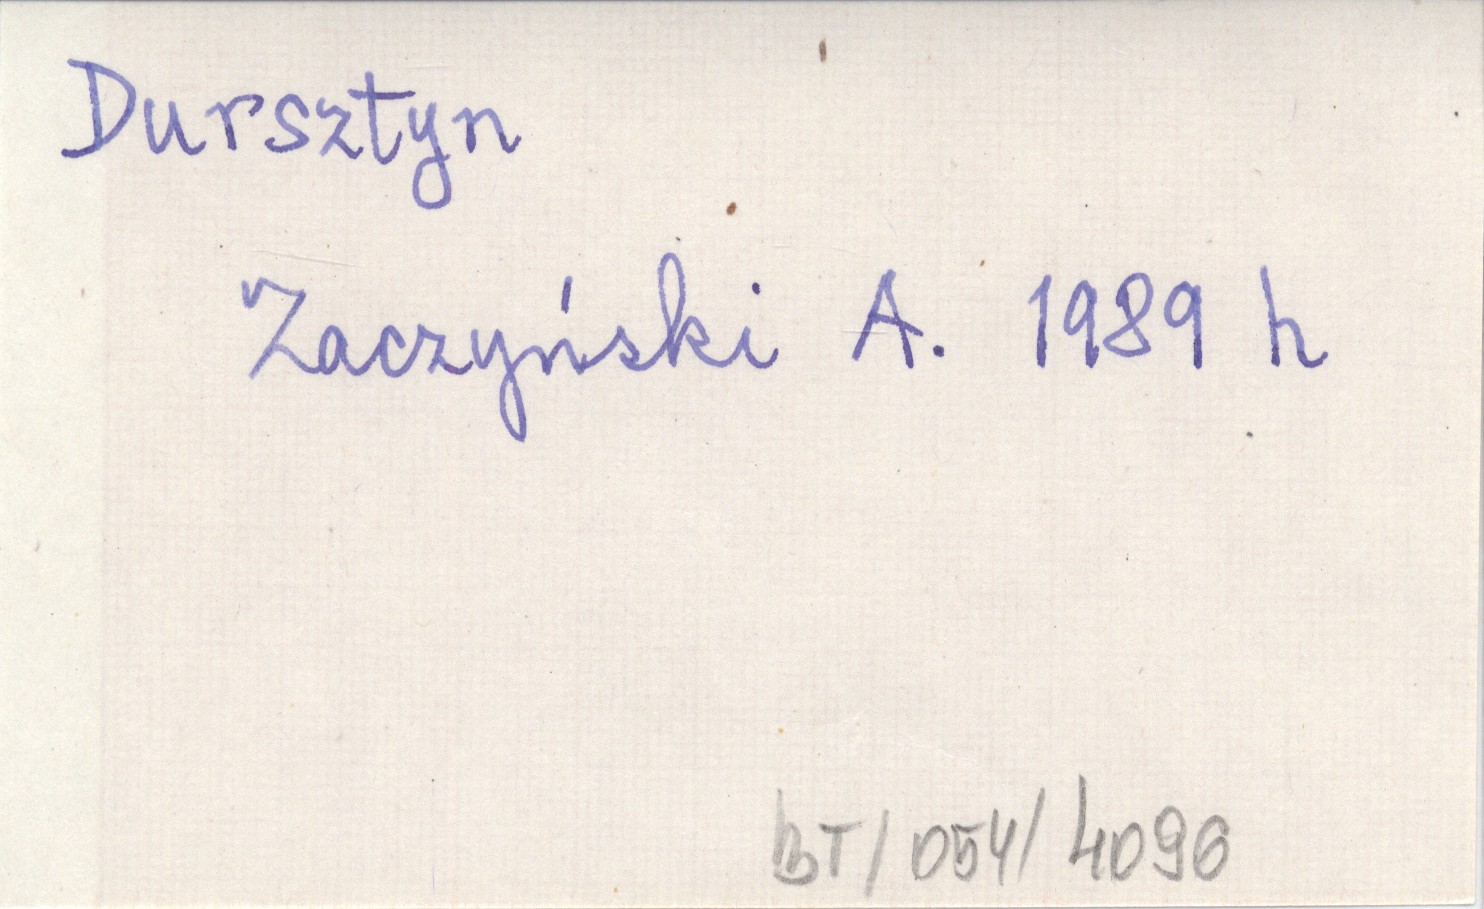 Dursztyn
Zaczyński A. 1989 h
BT/054/4096